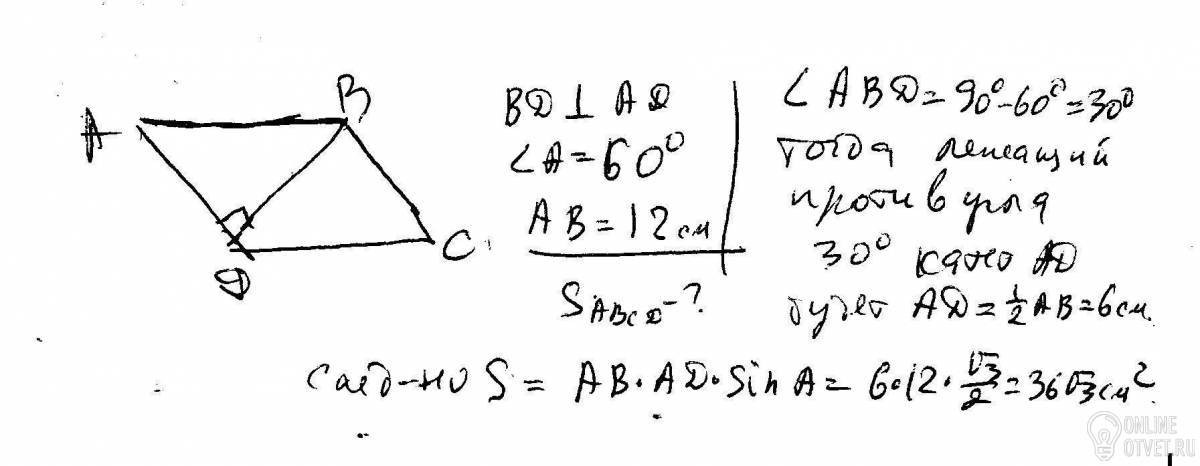 A
B
C
D
BD ⊥ AD
∠A = 60°
AB = 12 см
S ABCD - ?
∠ABD = 90° - 60° = 30°
тогда лежащий
против угла
30° катет AD
будет AD = 1/2 AB = 6 см.
След-но S = AB · AD · Sin A = 6·12 · √3/2 = 36√3 см².
ONLINE
OTVET.RU